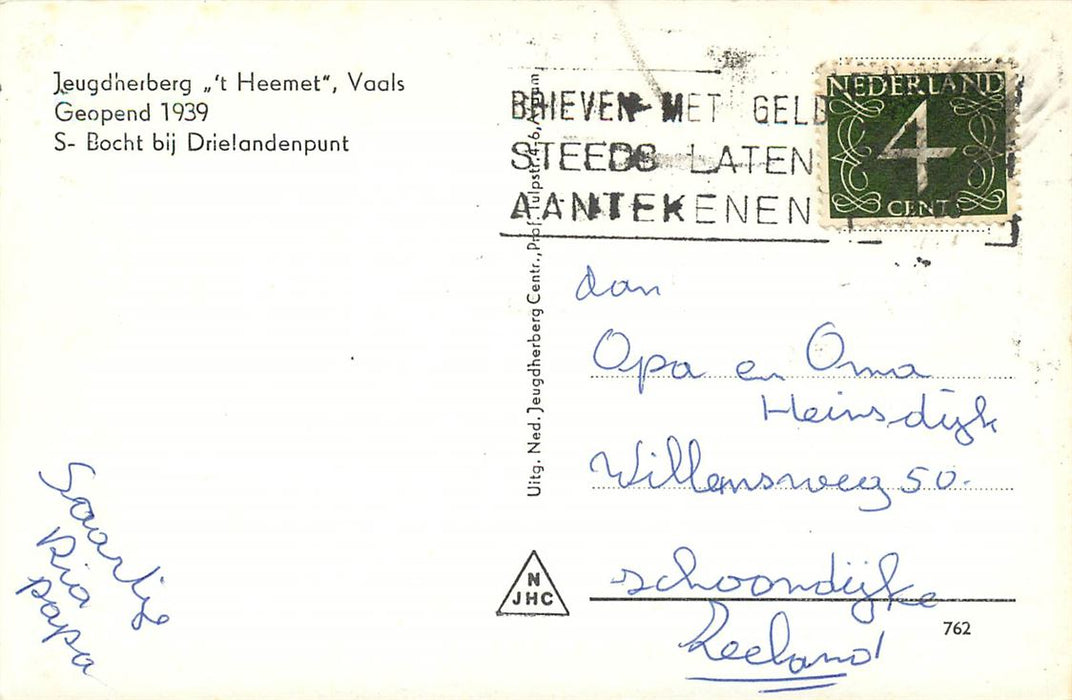 Jeugdherberg „'t Heemet“, Vaals
Geopend 1939
S- Bocht bij Drielandenpunt
BRIEVEN MET GELD
STEEDS LATEN
AANTEKENEN
NEDERLAND
4
CENT
Uitg. Ned. Jeugdherberg Centr., Prof. Tulpstr. 4, 6,
Aan
Opa en Oma
Heinsdijk
Willemsweg 50.
Schoondijke
Zeeland
Saartje
Ria
papa
N
JHC
762